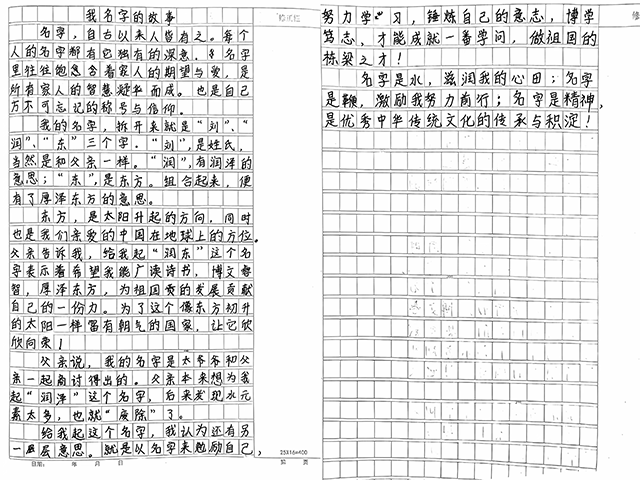 我名字的故事
名字，自古以来人皆有之。每个
人的名字都有它独有的深意，名字
里往往饱含着家人的期望与爱，是
所有家人的智慧凝而成。也是自己
万不可忘记的称号与信仰。
我的名字，拆开来就是“刘”、“
润”、“东”三个字。“刘”，是姓氏，
当然是和父亲一样。“润”，有润泽的
意思；“东”，是东方。组合起来，便
有了厚泽东方的意思。
东方，是太阳升起的方向，同时
也是我们亲爱的中国在地球上的方位。
父亲告诉我，给我起“润东”这个名
字表示着希望我能广读诗书，博文睿
智，厚泽东方，为祖国的发展贡献
自己的一份力。为了这个像东方初升
的太阳一样富有朝气的国家，让它欣
欣向荣！
父亲说，我的名字是太爷爷和父
亲一起商讨得出的。父亲本来想为我
起“润泽”这个名字，后来发现水元
素太多，也就“废除”了。
给我起这个名字，我认为还有另
一层意思。就是以名字来勉励自己，
25X16=400
日期： 年 月 日
第 页
努力学习，锤炼自己的意志，博学
笃志，才能成就一番学问，做祖国的
栋梁之才！
名字是水，滋润我的心田；名字
是鞭，激励我努力前行；名字是精神，
是优秀中华传统文化的传承与积淀！